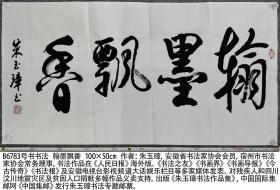 翰墨飄香
朱玉璋書
B6783号书书法 翰墨飘香 100×50cm 作者：朱玉璋，安徽省书法家协会会员，宿州市书法
家协会常务理事，书法作品在《人民日报》海外版、《书法之友》《书画界》《书画导报》《今
古传奇》《书法报》及安徽电视台影视频道大话娱乐栏目等多家媒体发表。对残疾人和四川
汶川地震灾区及贫困人口捐献多幅作品义卖支持，出版《朱玉璋书法作品集》，中国国际集
邮网《中国集邮》发行朱玉璋书法专题邮票。